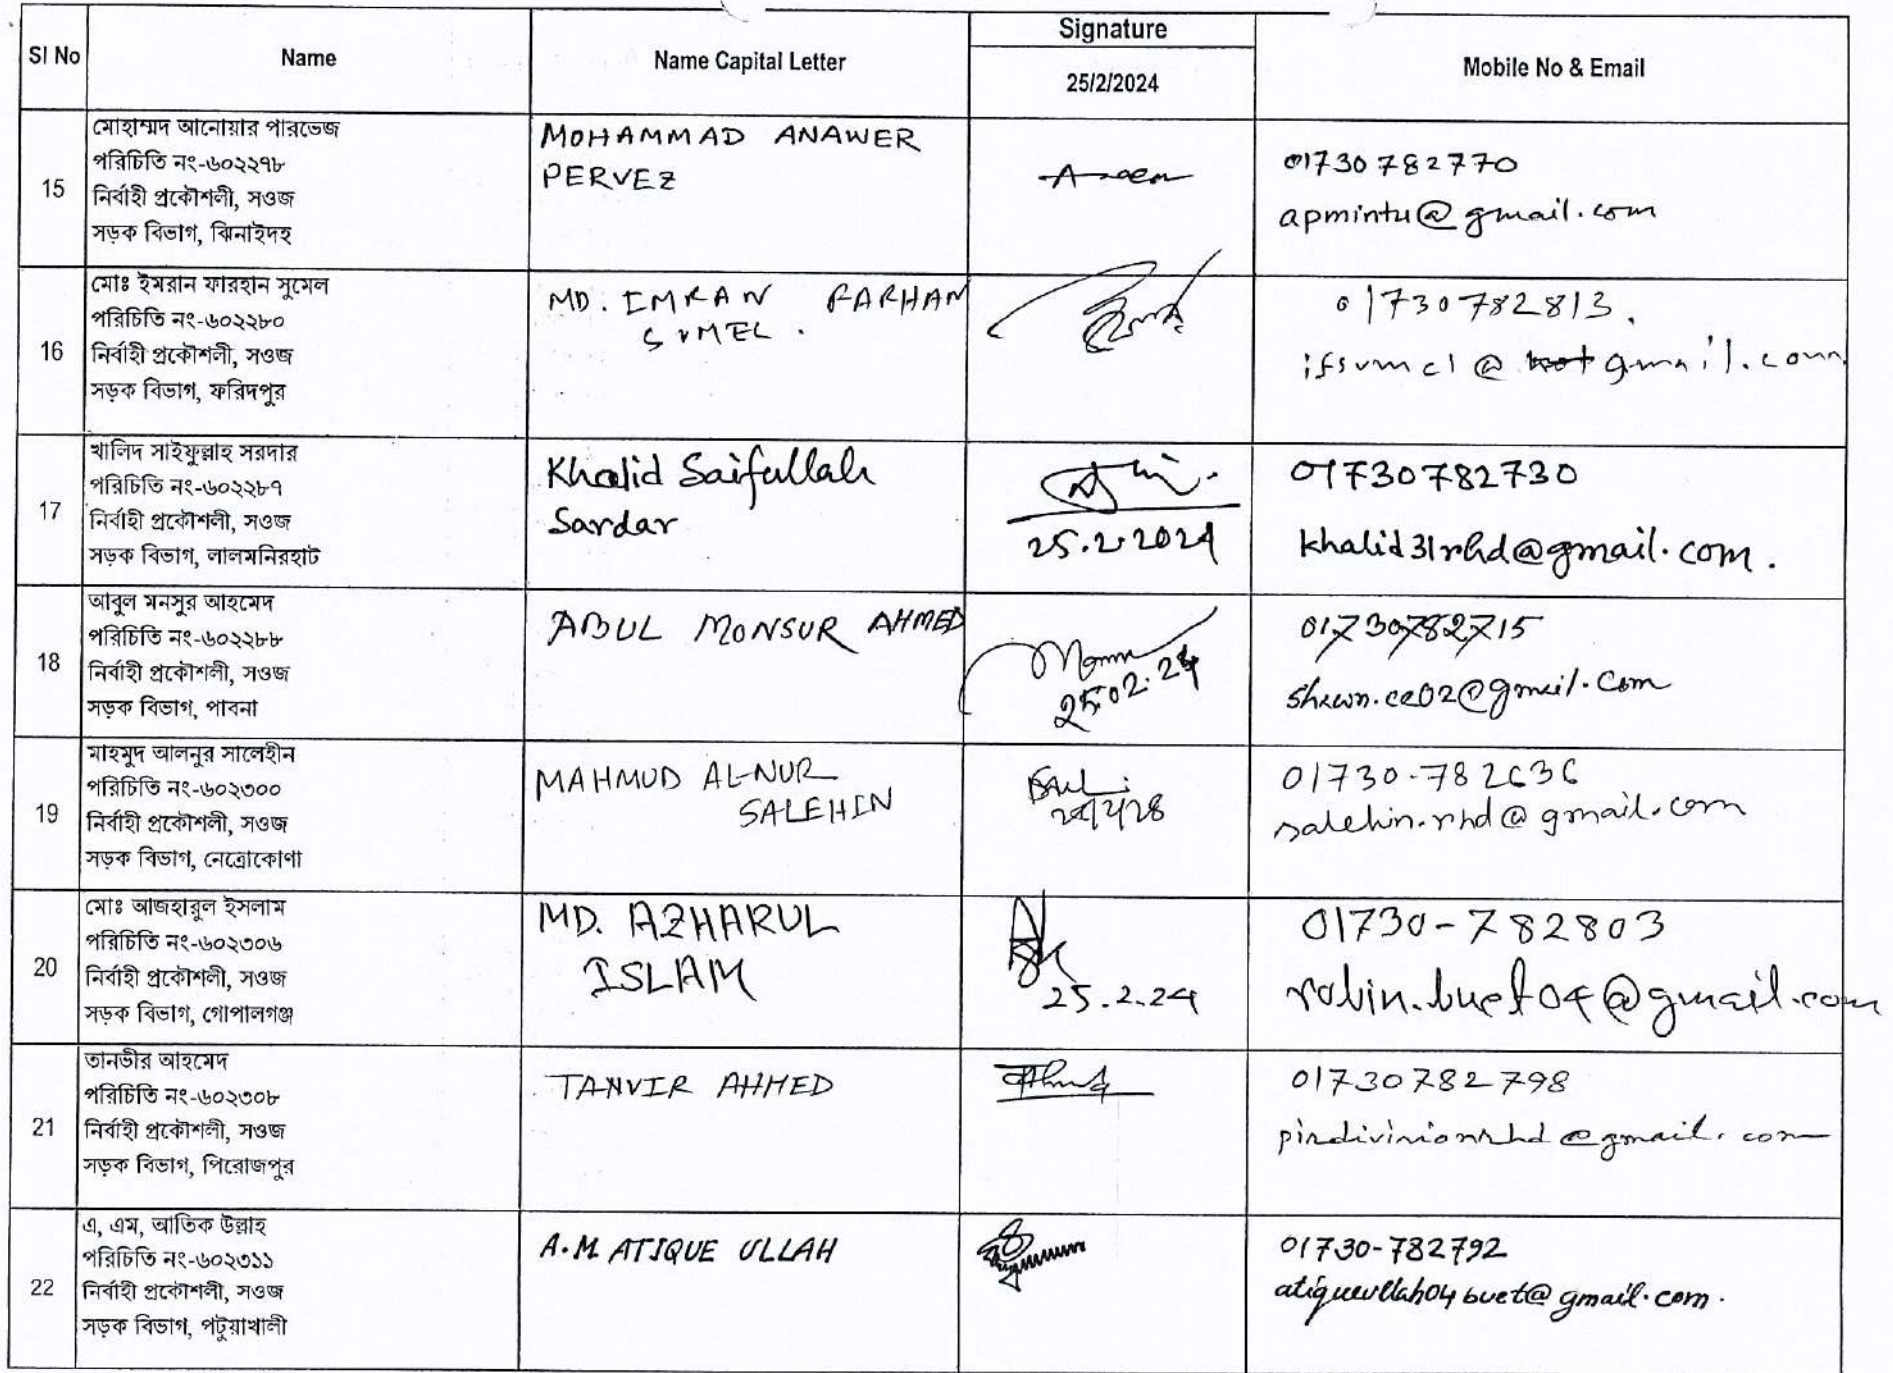 Sl No
Name
Name Capital Letter
Signature
25/2/2024
Mobile No & Email
15
মোহাম্মদ আনোয়ার পারভেজ
পরিচিতি নং-৬০২২৭৮
নির্বাহী প্রকৌশলী, সওজ
সড়ক বিভাগ, ঝিনাইদহ
MOHAMMAD ANAWER
PERVEZ
01730782770
apmintu@gmail.com
16
মোঃ ইমরান ফারহান সুমেল
পরিচিতি নং-৬০২২৮০
নির্বাহী প্রকৌশলী, সওজ
সড়ক বিভাগ, ফরিদপুর
MD. IMRAN FARHAN
SUMEL.
01730782813.
ifsumel@gmail.com
17
খালিদ সাইফুল্লাহ সরদার
পরিচিতি নং-৬০২২৮৭
নির্বাহী প্রকৌশলী, সওজ
সড়ক বিভাগ, লালমনিরহাট
Khalid Saifullah
Sardar
25.2.2024
01730782730
khalid31rhd@gmail.com.
18
আবুল মনসুর আহমেদ
পরিচিতি নং-৬০২২৮৮
নির্বাহী প্রকৌশলী, সওজ
সড়ক বিভাগ, পাবনা
ABUL MONSUR AHMED
25.02.24
01730782715
shawn.ce02@gmail.com
19
মাহমুদ আলনুর সালেহীন
পরিচিতি নং-৬০২৩০০
নির্বাহী প্রকৌশলী, সওজ
সড়ক বিভাগ, নেত্রোকোণা
MAHMUD AL-NUR
SALEHIN
01730-782636
salehin.rhd@gmail.com
20
মোঃ আজহারুল ইসলাম
পরিচিতি নং-৬০২৩০৬
নির্বাহী প্রকৌশলী, সওজ
সড়ক বিভাগ, গোপালগঞ্জ
MD. AZHARUL
ISLAM
25.2.24
01730-782803
robin.buet04@gmail.com
21
তানভীর আহমেদ
পরিচিতি নং-৬০২৩০৮
নির্বাহী প্রকৌশলী, সওজ
সড়ক বিভাগ, পিরোজপুর
TANVIR AHMED
01730782798
pirdivisionrhd@gmail.com
22
এ, এম, আতিক উল্লাহ
পরিচিতি নং-৬০২৩১১
নির্বাহী প্রকৌশলী, সওজ
সড়ক বিভাগ, পটুয়াখালী
A.M. ATIQUE ULLAH
01730-782792
atiqueullah04buet@gmail.com.